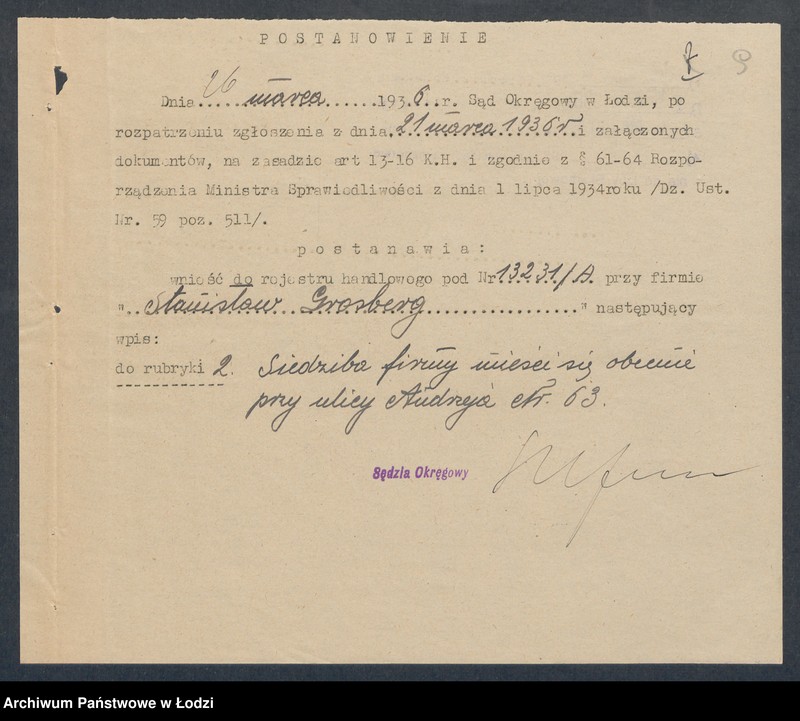 POSTANOWIENIE
Dnia..26..marca......193.6..r. Sąd Okręgowy w Łodzi, po
rozpatrzeniu zgłoszenia z dnia.21 marca 1936 r.i załączonych
dokumentów, na zasadzie art 13-16 K.H. i zgodnie z § 61-64 Rozpo-
rządzenia Ministra Sprawiedliwości z dnia 1 lipca 1934roku /Dz. Ust.
Nr. 59 poz. 511/.
postanawia:
wnieść do rejestru handlowego pod Nr 13231/A. przy firmie
"..Stanisław...Grosberg..................." następujący
wpis:
do rubryki 2. Siedziba firmy mieści się obecnie
przy ulicy Andrzeja Nr. 63.
Sędzia Okręgowy
Archiwum Państwowe w Łodzi